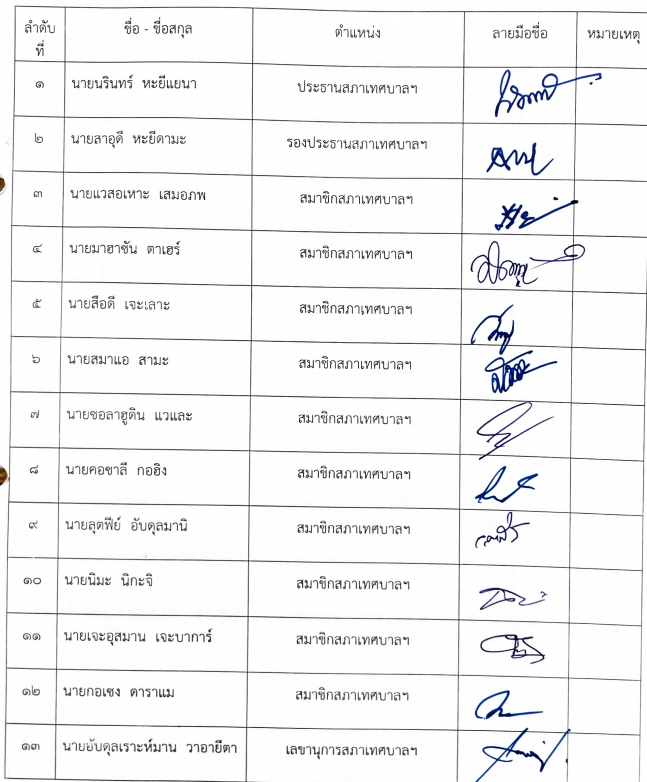 ลำดับที่ ชื่อ - ชื่อสกุล ตำแหน่ง ลายมือชื่อ หมายเหตุ
๑ นายนรินทร์ หะยีแยนา ประธานสภาเทศบาลฯ
๒ นายสาอุดี หะยีตามะ รองประธานสภาเทศบาลฯ
๓ นายแวสอเหาะ เสมอภพ สมาชิกสภาเทศบาลฯ
๔ นายมาฮาซัน ตาเฮร์ สมาชิกสภาเทศบาลฯ
๕ นายสือดี เจะเลาะ สมาชิกสภาเทศบาลฯ
๖ นายสมาแอ สามะ สมาชิกสภาเทศบาลฯ
๗ นายซอลาฮูดิน แวและ สมาชิกสภาเทศบาลฯ
๘ นายคอซาลี กอฮิง สมาชิกสภาเทศบาลฯ
๙ นายลุตฟีย์ อับดุลมานิ สมาชิกสภาเทศบาลฯ
๑๐ นายนิมะ นิกะจิ สมาชิกสภาเทศบาลฯ
๑๑ นายเจะอุสมาน เจะบาการ์ สมาชิกสภาเทศบาลฯ
๑๒ นายกอเซง ดาราแม สมาชิกสภาเทศบาลฯ
๑๓ นายอับดุลเราะห์มาน วาอายีตา เลขานุการสภาเทศบาลฯ